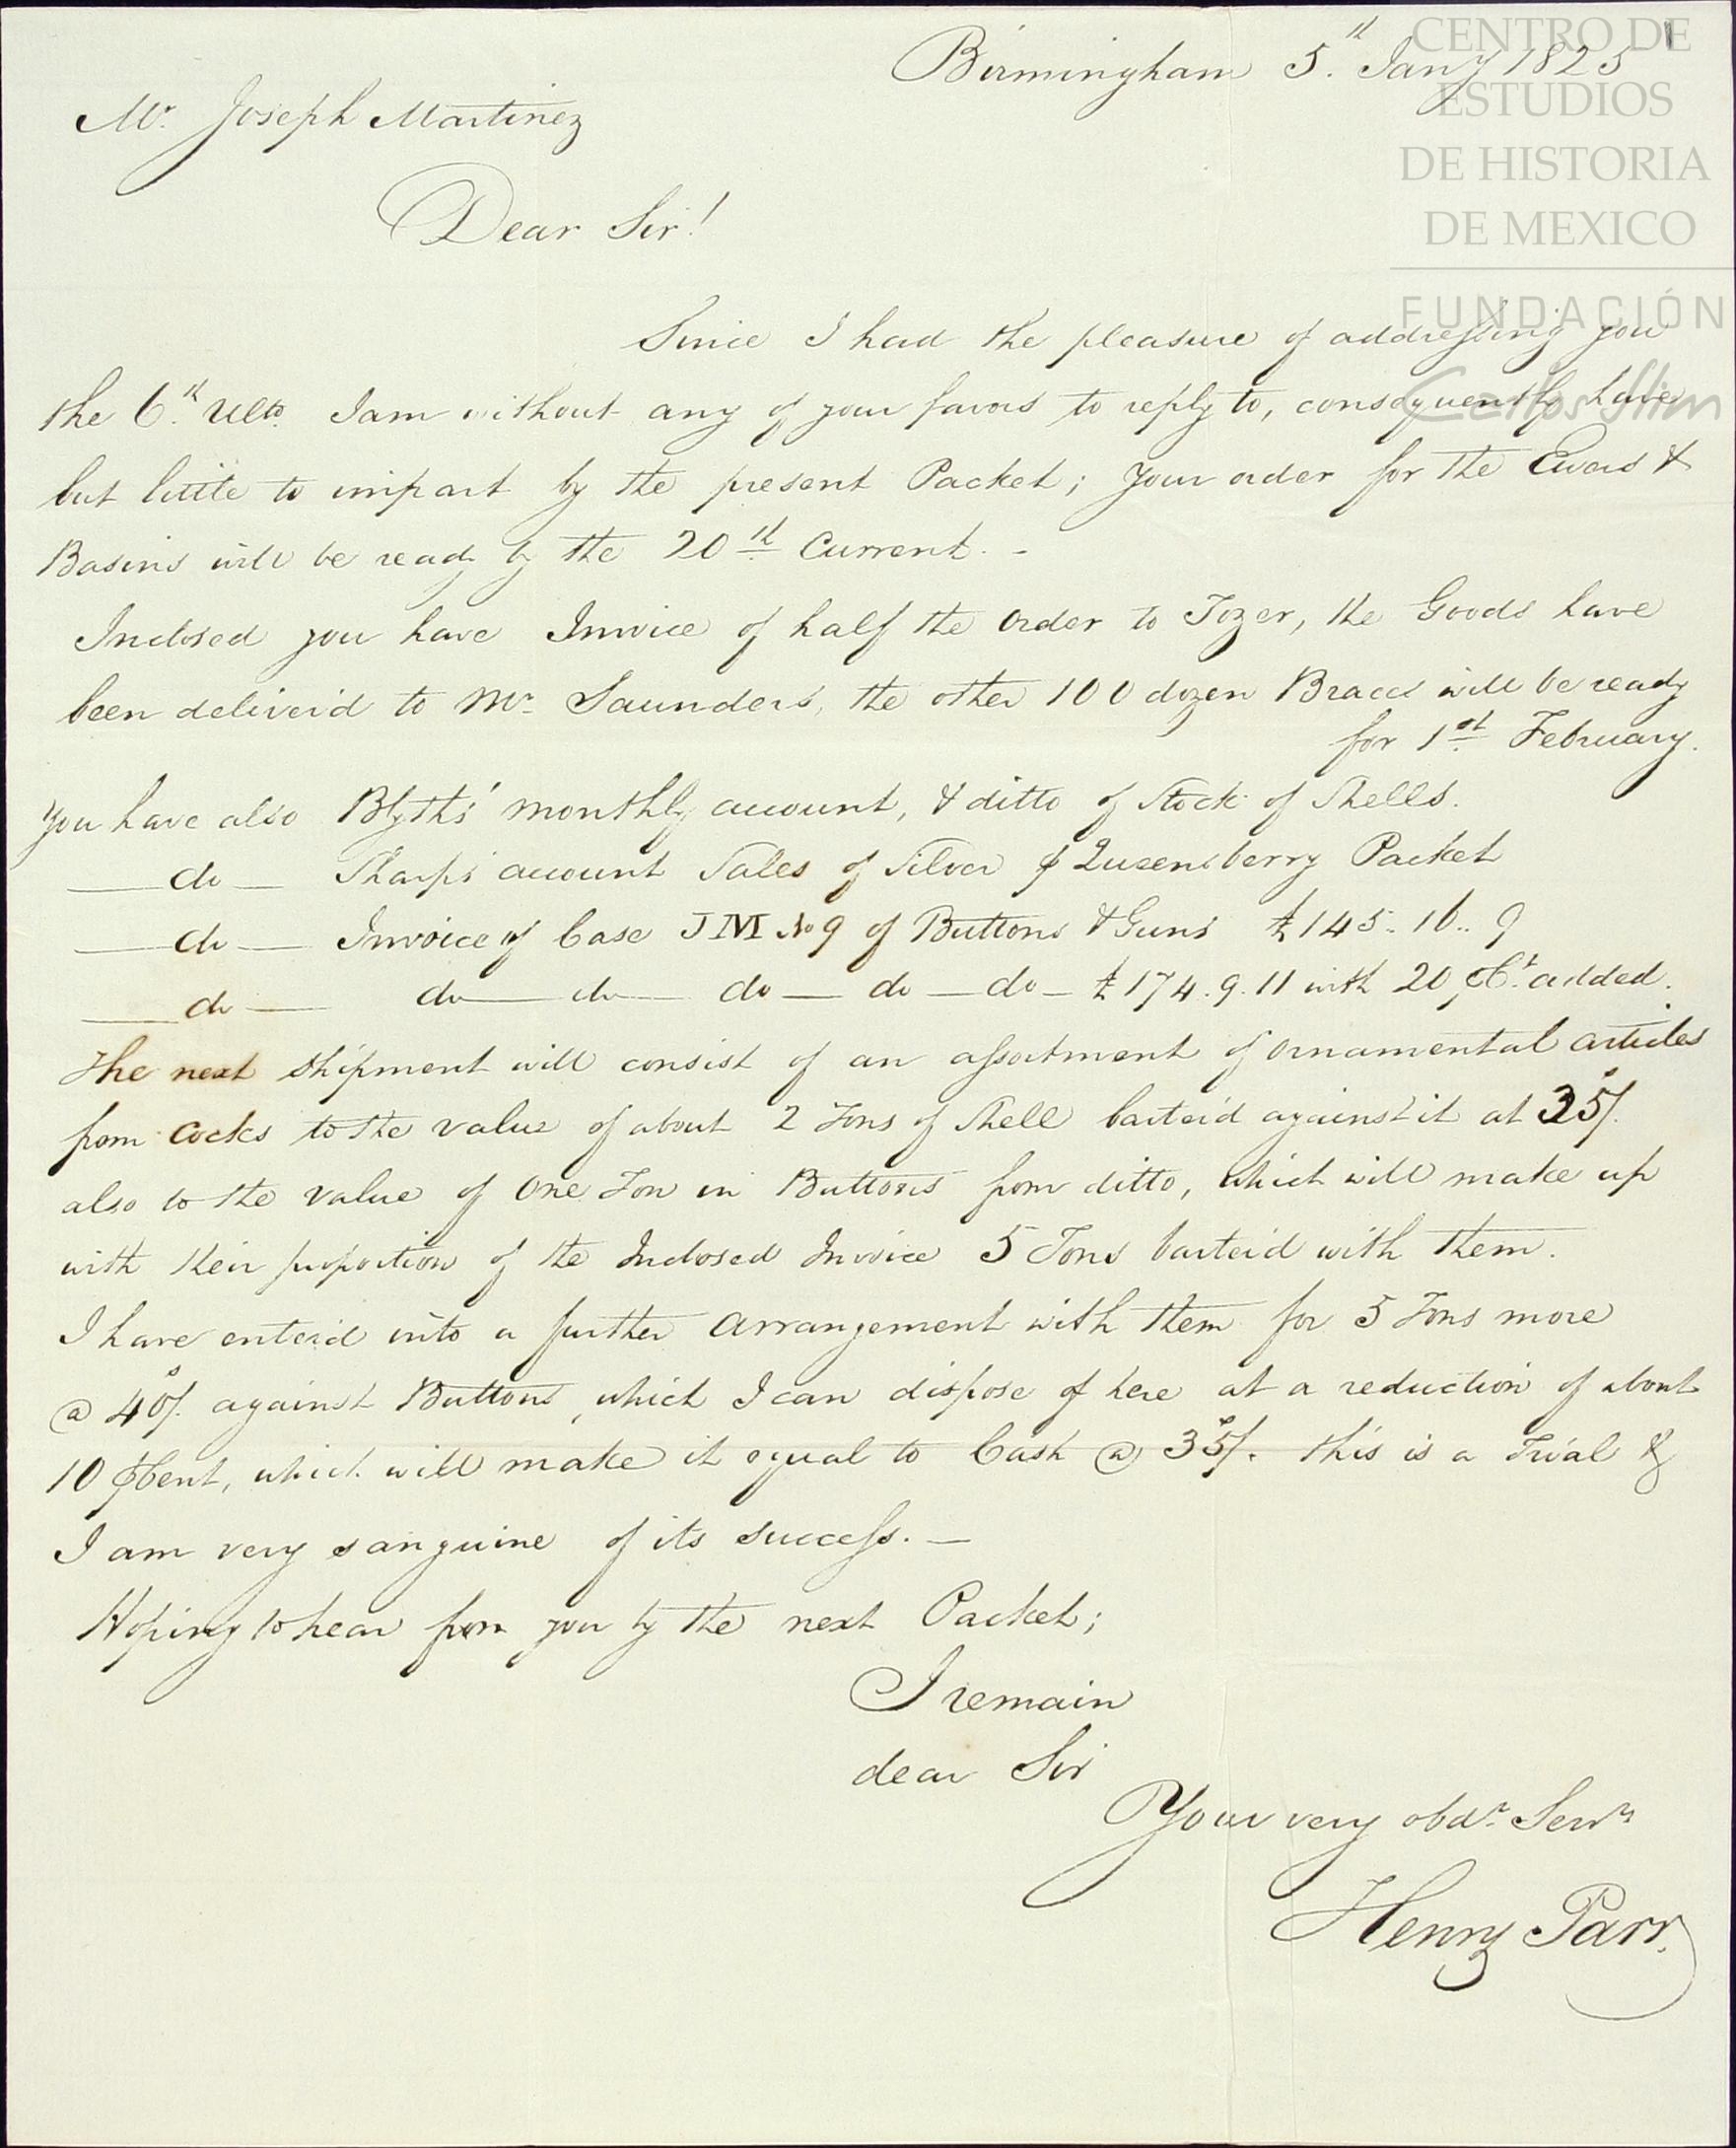 CENTRO DE
ESTUDIOS
DE HISTORIA
DE MEXICO
FUNDACIÓN
Carlos Slim
Birmingham 5.th Jany 1825
Mr. Joseph Martinez
Dear Sir!
Since I had the pleasure of addressing you
the 6.th Ulto. I am without any of your favors to reply to, consequently have
but little to impart by the present Packet; your order for the Ewers &
Basins will be ready by the 20th Current. -
Inclosed you have Invoice of half the order to Tozer, the Goods have
been deliver'd to Mr. Saunders, the other 100 dozen Braces will be ready
for 1st February.
You have also Blyth's monthly account, & ditto of Stock of Shells.
— do — Sharps' account Sales of Silver ⅌ Queensberry Packet
— do — Invoice of Case JM No 9 of Buttons & Guns £145.. 16.. 9
— do — do — do — do — do — do — £174.9.11 with 20 ⅌ Ct. added.
The next shipment will consist of an assortment of ornamental articles
from Cocks to the value of about 2 Tons of Shell barter'd against it at 35s/.
also to the value of One Ton in Buttons from ditto, which will make up
with their proportion of the Inclosed Invoice 5 Tons barter'd with them.
I have enter'd into a further arrangement with them for 5 Tons more
@ 40s/. against Buttons, which I can dispose of here at a reduction of about
10 ⅌ Cent, which will make it equal to Cash @ 35s/. this is a Trial &
I am very sanguine of its success. —
Hoping to hear from you by the next Packet;
I remain
dear Sir
Your very obdt. Servt
Henry Parr.